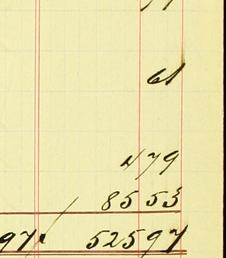 61
479
8553
97 52597